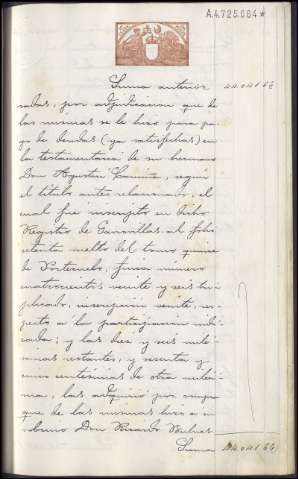 A.4.725.684*
Suma anterior
sadas, por adjudicacion que de
las mismas se le hizo para pa-
go de deudas (ya satisfechas) en
la testamentaria de su hermano
Don Agustin según
el titulo antes relacionado, el
cual fue inscripto en dicho
Registro de al folio
setenta vuelto del tomo quince
de finca número
cuatrocientos veinte y seis du-
plicado, inscripcion veinte, res-
pecto a la participacion indi-
cada; y las diez y seis milé-
simas restantes, y sesenta y
cinco centésimas de otra milési-
ma, las adquirió por compra
que de las mismas hizo a su
sobrino Don Ricardo
Suma